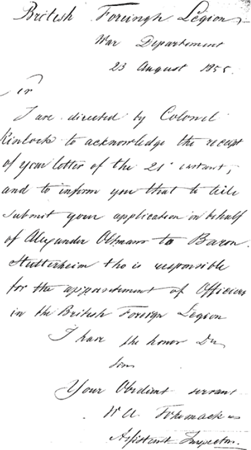 British Foreingh Legion
War Departement
23 August 1855.
Sir
I ave directed by Colonel
Kinlock to acknowledge the receipt
of your letter of the 21st instant,
and to inform you that te will
submit your application in behalf
of Alexander Oltmann to Baron
Stutterheim tho is responsible
for the appointement of Officers
in the British Foreign Legion
I have the honor
Sir
Your Obedient servant
Assistent Inspector.